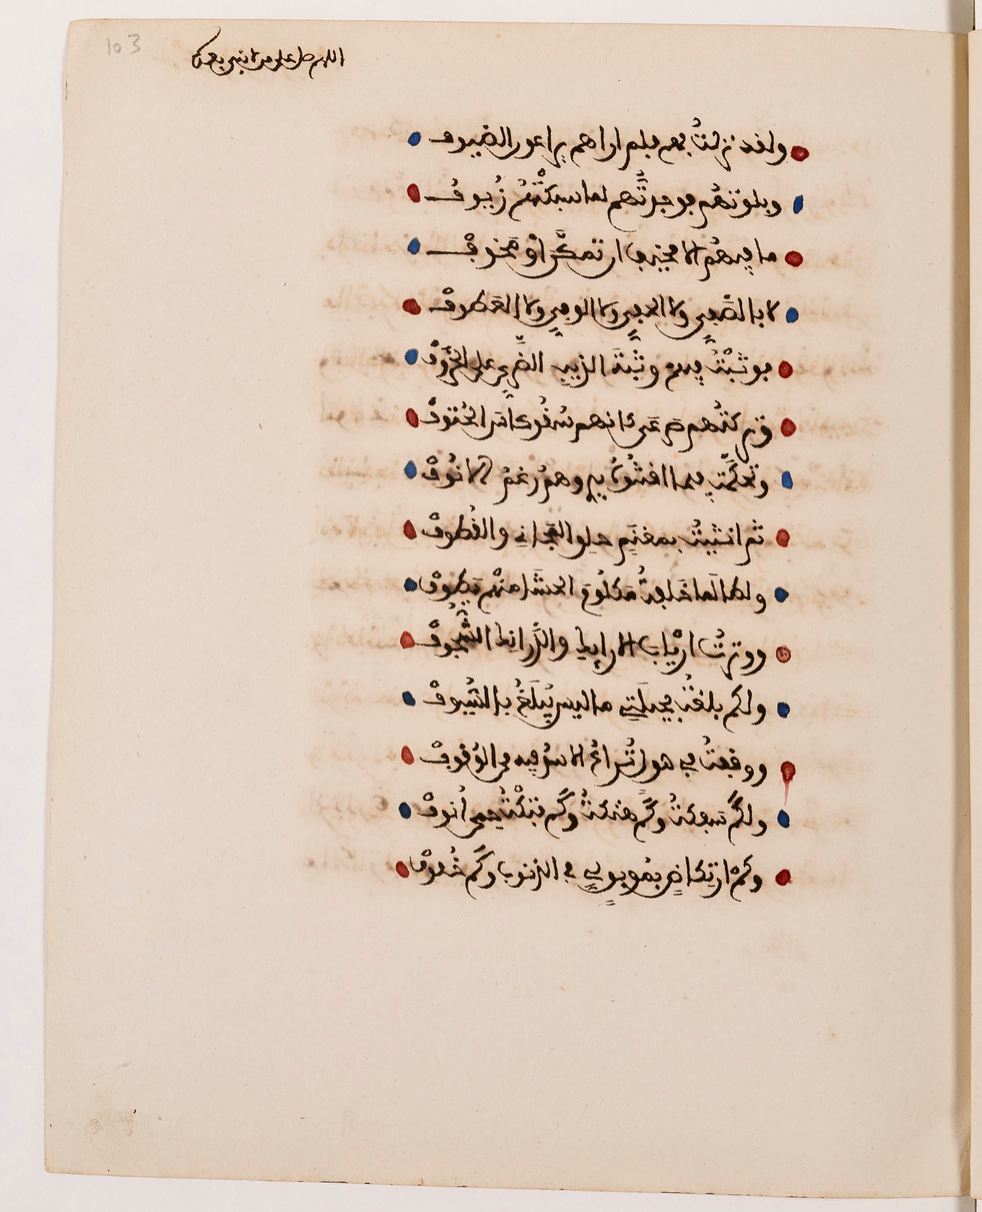 103
اللهم صل على من لا نبي بعده
ولقد نزلتُ بهم فلم اراهم يراعون الضيوف
وبلوتهُم فوجدتُّهم لما سبكتُهُمُ زُيوفْ
ما فيهمُ الا مخيف ان تمكَّن اوْ مَخوفْ
لا بالصَّفيِ ولا الحفيِ ولا الوفيِ ولا العَطوفْ
فوثبْتُ فيهم وثْبَةَ الذيب الضَّريِ على الخَرُوفْ
وتركتُهم صرعَى كانهم سُقُوا كاس الحُتوفْ
وتحكَّمت فيما اقتنُوهُ يدي وهمْ رغمُ الانُوفْ
ثم انثنيتُ بمغنَمٍ حلو المجاني والقُطوفْ
ولطالما خلفتُ مَكلُومَ الحشَا منهُم يَطوفْ
ووترتُ اربابَ الارايك والدَّرانك والسُّجُوفْ
ولكم بلغتُ بحيلَتي ما ليس يُبلَغُ بالسُّيوفْ
ووقفتُ في هول تُراعُ الاسْدُ فيه من الوُقوفْ
ولكَمْ سفكتُ وكَمْ هتكتُ وكَم فتكْتُ بحمى اَنوفْ
وكم ارتكاضٍ موبقٍ لي في الذنوب وكَم خُفوفْ